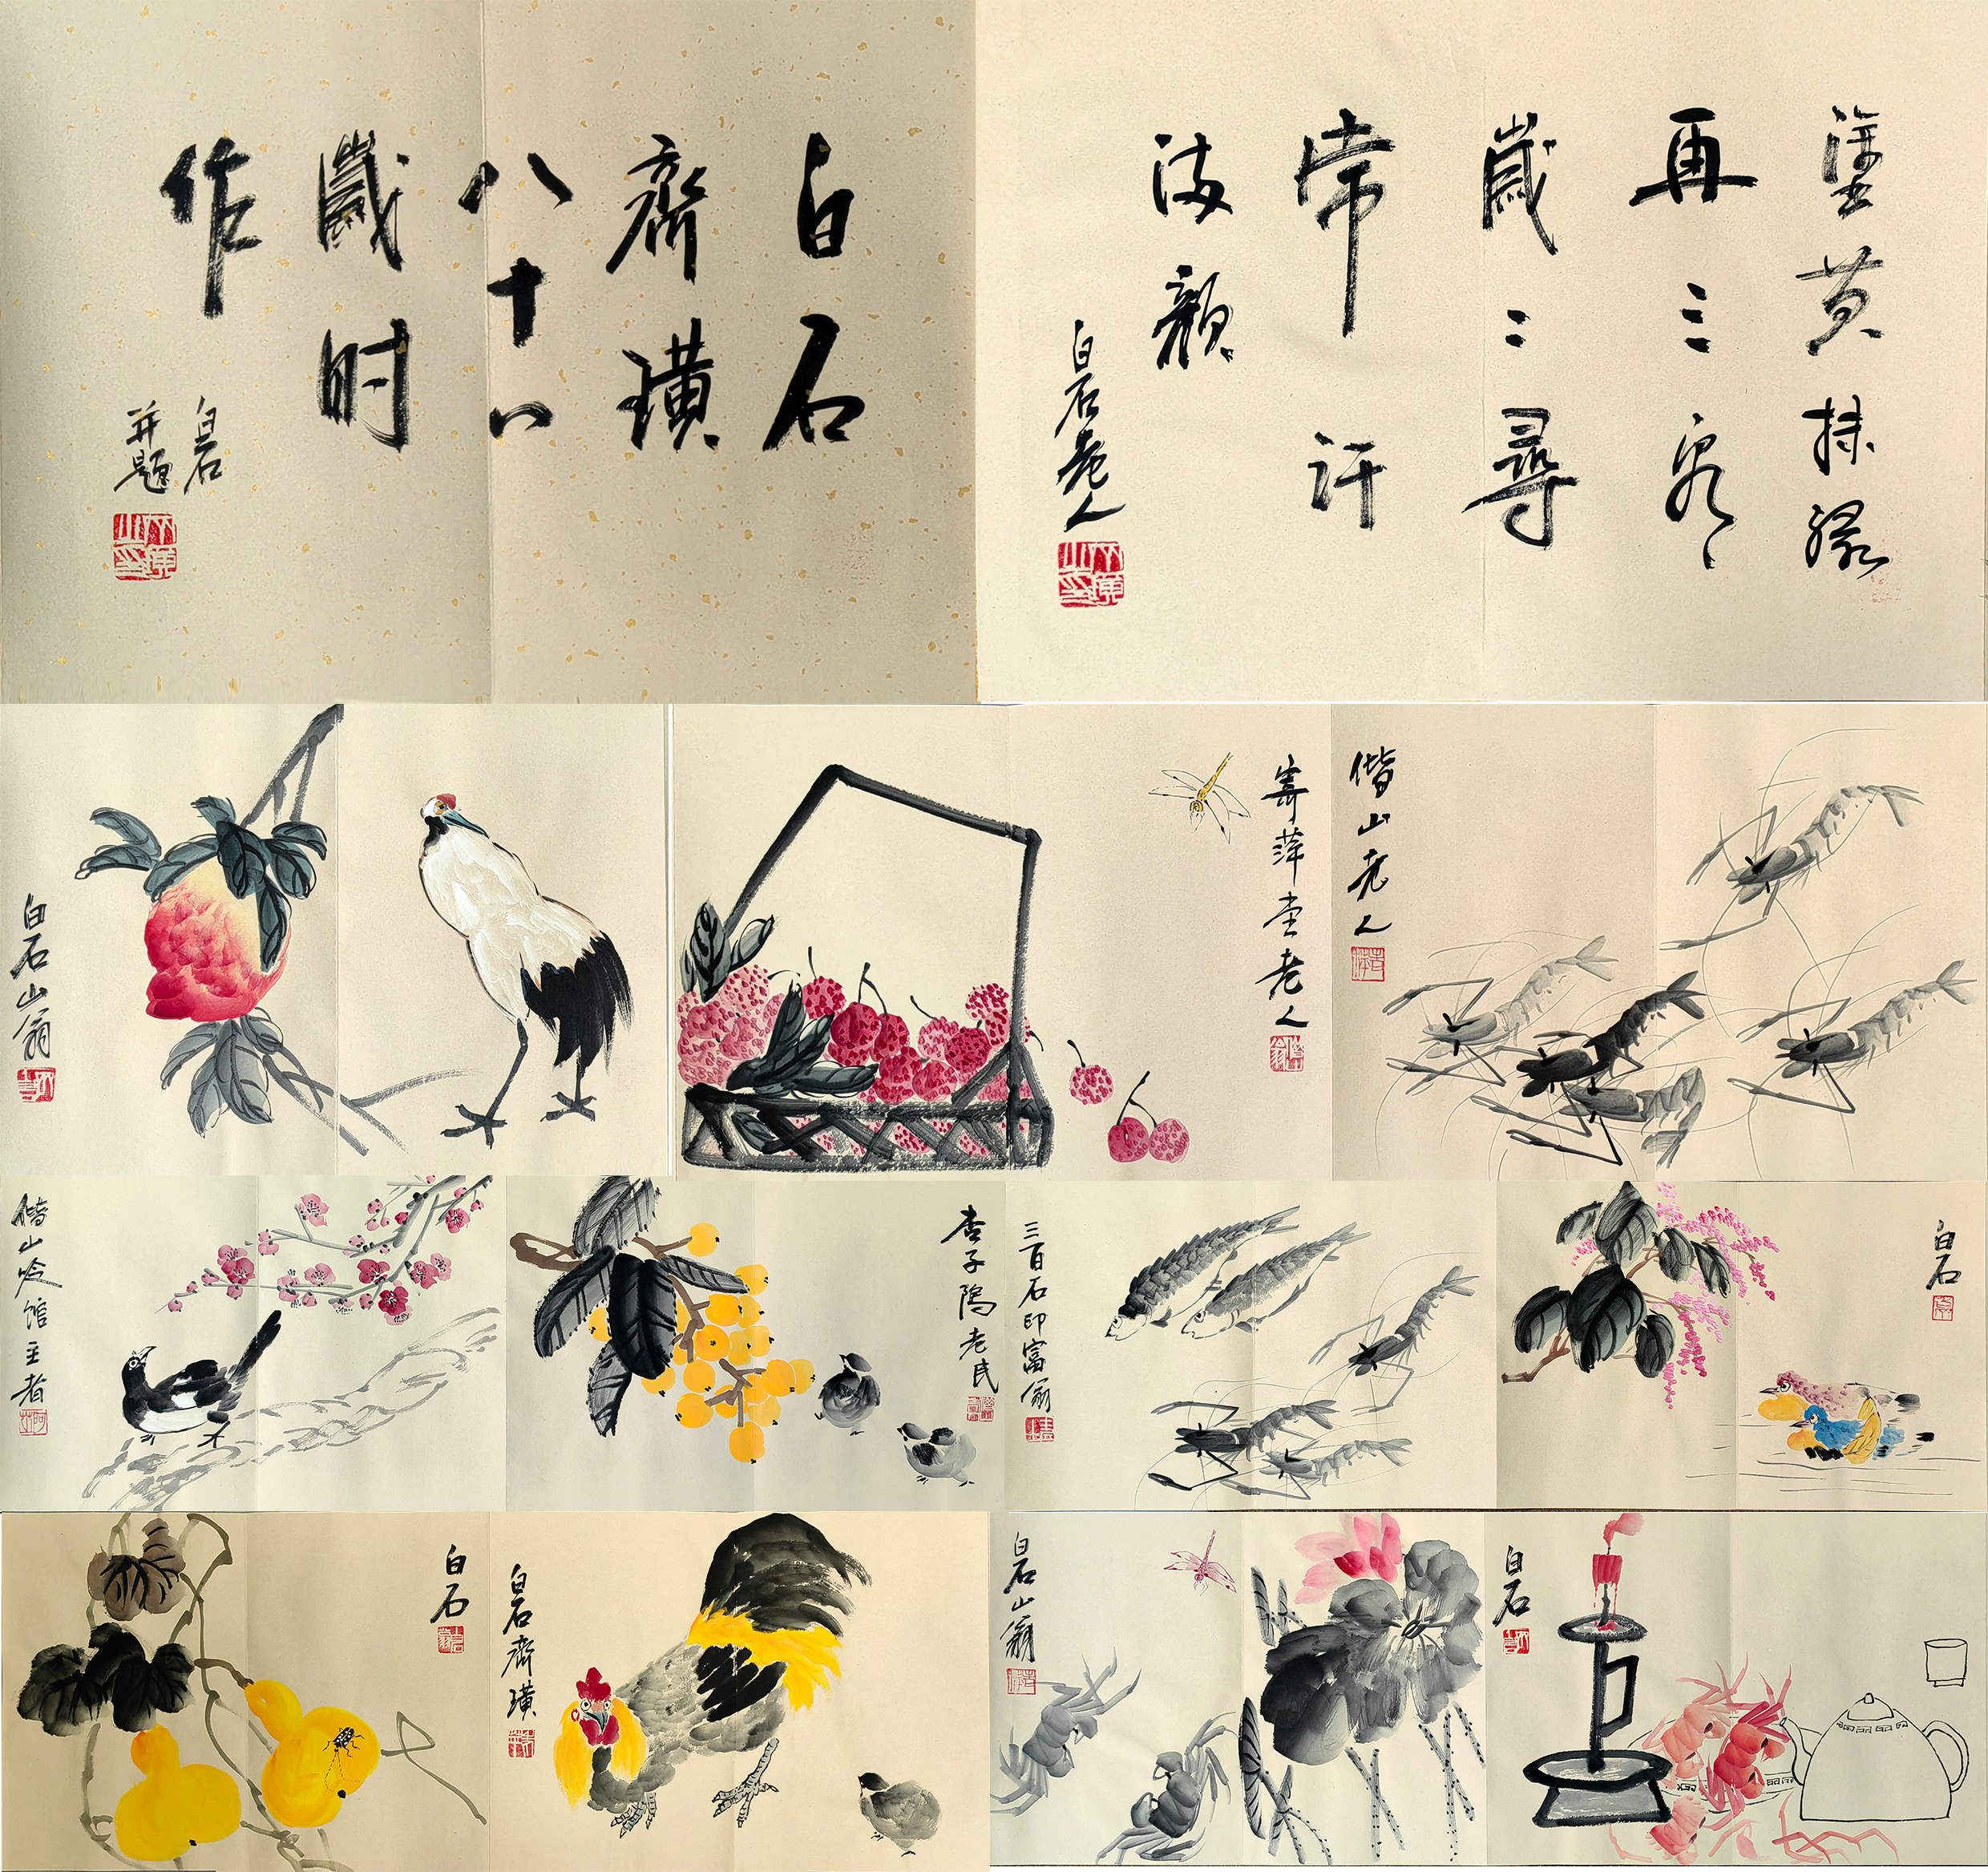 白石
齊璜
八十八
歲时
作
白石
并題
塗黄抹緑
再三看
歲〻尋
常汗
满顔
白石老人
白石山翁
寄萍堂老人
借山老人
借山吟馆主者
杏子隖老民
三百石印富翁
白石
白石
白石齊璜
白石山翁
白石